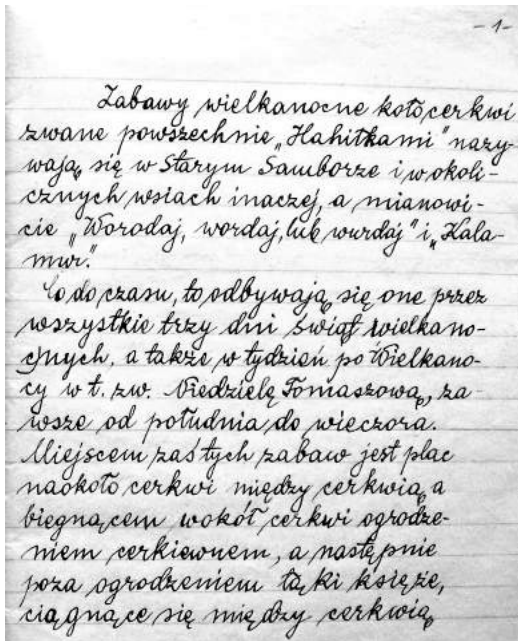 - 1 -
Zabawy wielkanocne koło cerkwi
zwane powszechnie „Hahiłkami" nazy-
wają się w Starym Samborze i w okoli-
cznych wsiach inaczej, a mianowi-
cie „Worodaj, wordaj, lub wurdaj" i „Kala-
mur."
Co do czasu, to odbywają się one przez
wszystkie trzy dni świąt wielkano-
cnych, a także w tydzień po Wielkano-
cy w t. zw. Niedzielę Tomaszową, za-
wsze od południa do wieczora.
Miejscem zaś tych zabaw jest plac
naokoło cerkwi między cerkwią, a
biegnącem wokół cerkwi ogrodze-
niem cerkiewnem, a następnie
poza ogrodzeniem łąki księże,
ciągnące się między cerkwią